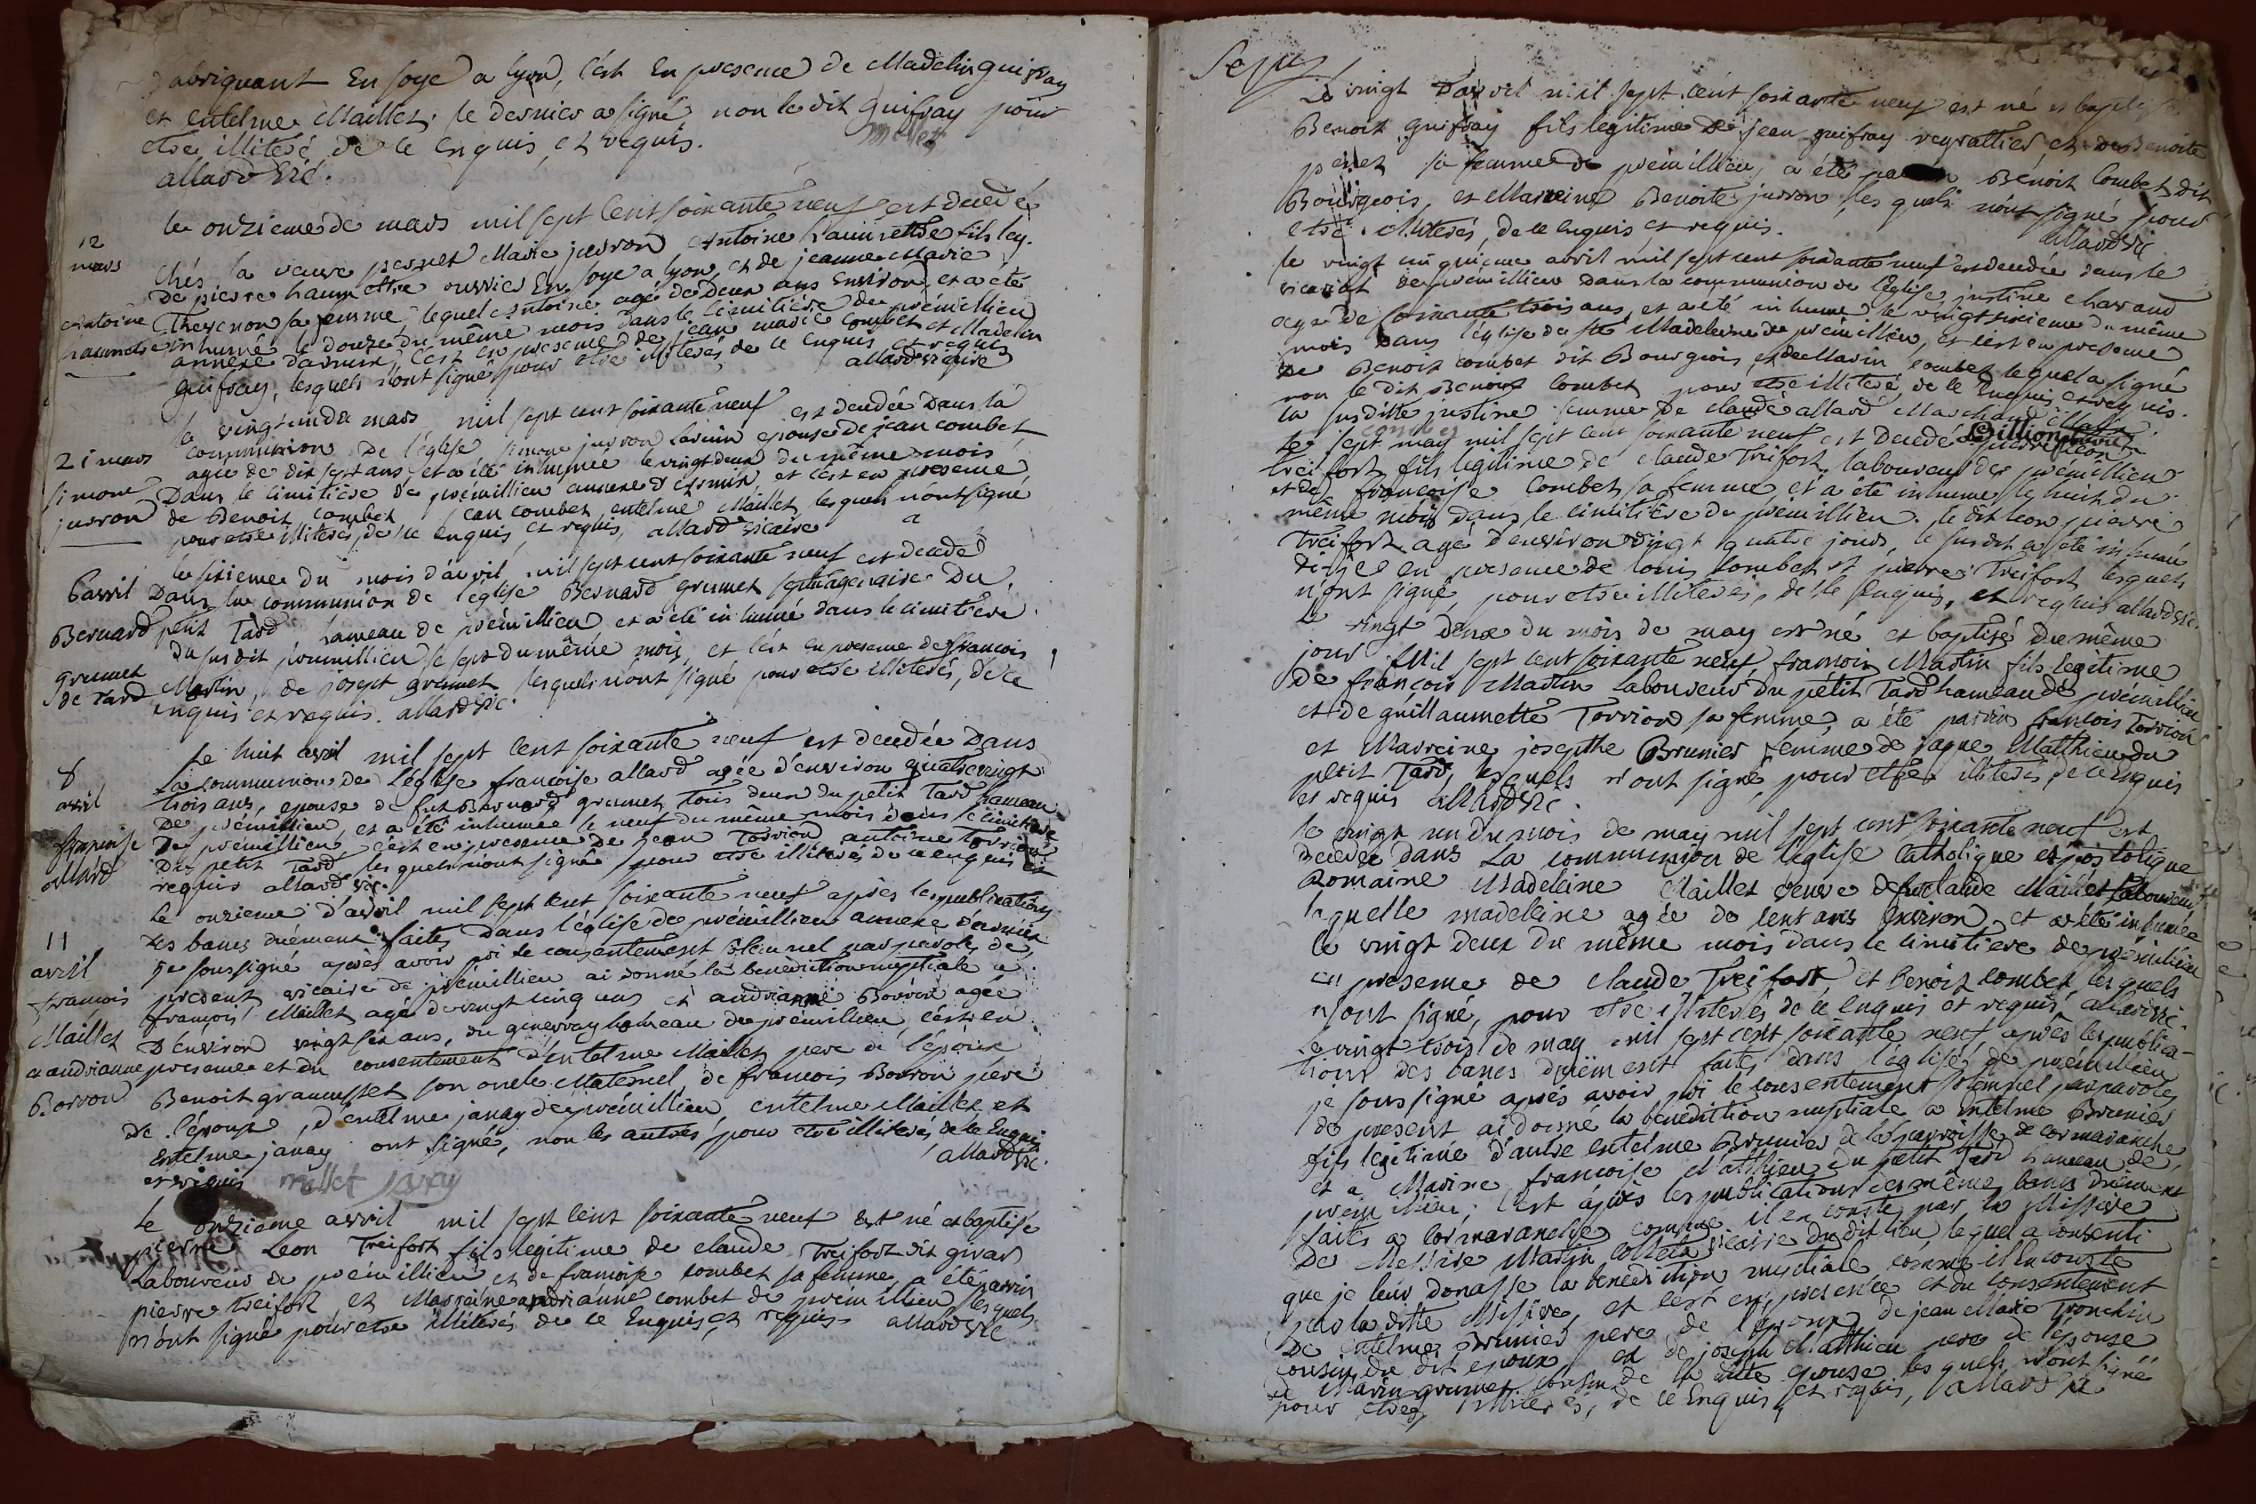 fabriquant En soye a lyon, c'est En presence de Madelin guifray
et entelme Maillet. le dernier a signé non le dit guifray pour
etre illiteré de ce Enquis, et requis. mallet
allard vic.
le onzieme de mars mil sept Cent soixante neuf est decedé
12
mars
Chés la veuve pernet Marie juvron Antoine haumette fils leg.
De pierre haumette ouvrier En soye a lyon, et de jeanne Marie
Antoine
Thevenon sa femme lequel Antoine agé de Deux ans Environ, et a été
haumette
inhumé le douze du même mois dans le cimitière de prémillieu
annexe d'armix, C'est en presence de jean marie combet et Madelin
guifray, lesquels n'ont signé pour etre illiterés, de ce Enquis et requis
allard vicaire
le vingt un de mars mil sept cent soixante neuf est decedée Dans la
21 mars
communion De l'église Simone juvron epouse de jean combet
agée de dix sept ans, et a été inhumée le vingt deux du même mois
Simone
Dans le cimitière de prémillieu annexe d'armix, et c'est en presence
juvron
de Benoit combet, jean combet, entelme Maillet, lesquels n'ont signé
pour etre illiterés, de ce enquis, et requis, allard vicaire
le sixieme du mois d'avril mil sept cent soixante neuf est decedé
6 avril
Dans la communion de l'eglise Bernard grumet septuagenaire Du
Bernard
petit Tard, hameau de prémillieu et a été inhumé dans le cimitière
du susdit prémillieu le sept du même mois, et c'est en presence de françois
grumet
de Tard
Martin, de joseph grumet lesquels n'ont signé pour etre illiterés, de ce
enquis et requis. allard vic.
le huit avril mil sept cent soixante neuf est decedée Dans
8
avril
La communion de l'église françoise allard agée d'environ quatre vingt
trois ans, epouse de fut Bernard grumet tous deux du petit Tard hameau
De prémillieu, et a été inhumée le neuf du même mois dans le cimitière
françoise
allard
De prémillieu c'est en presence de jean Torrion, antoine Torrion
Du petit Tard lesquels n'ont signé pour etre illiterés de ce enquis et
requis allard vic.
le onzieme d'avril mil sept cent soixante neuf après les publications
11
avril
Des bancs duëment faites Dans l'église de prémillieu annexe d'armix
je soussigné après avoir pri le consentement solemnel par parole de
present vicaire de prémillieu ai donné la benediction nuptiale a
françois
françois Maillet agé de vingt cinq ans et andrianne Borron agée
Maillet
D'environ vingt six ans, du genevray hameau de prémillieu, c'est en
a andrianne
presence et du consentement d'entelme Maillet pere de l'epoux
Borron
Benoit grammusset son oncle Maternel, de francois Borron pere
de l'épouse, d'entelme janay de prémillieu, entelme Maillet et
Entelme janay ont signé, non les autres pour etre illiterés de ce Enquis
et requis mallet Janay allard vic.
le onzieme avril mil sept cent soixante neuf est né et baptisé
pierre Leon Treifort fils legitime de claude Treifort dit girar
Laboureur de prémillieu et de françoise combet sa femme, a été parrin
pierre treifort et Marreine andrianne combet de prémillieu lesquels
n'ont signé pour etre illiterés de ce Enquis, et requis allard vic

Sept
Le vingt d'avril mil sept cent soixante neuf est né et baptisé
Benoit guifray fils legitime de jean guifray regrattier et de Benoite
pernet sa femme de prémillieu, a été parrin Bénoit Combet dit
Bourgeois, et Marreine Benoite juvron, les quels n'ont signé pour
etre illiterés, de ce enquis et requis. allard vic
le vingt cinquieme avril mil sept cent soixante neuf est decedée dans le
vicariat de prémillieu Dans la communion de l'église, justine charaud
agée de soixante trois ans, et a été inhumée le vingt sixieme du même
mois dans l'église de ste Madeleine de prémillieu, et c'est en presence
de Benoit combet dit Bourgeois, et de Marin combet lequel a signé
non le dit Benoit Combet pour etre illiteré, de ce Enquis et requis.
la susditte justine femme de claude allard Marchand
combes
le sept may mil sept cent soixante neuf est decedé pierre leon
treifort, fils legitime de claude Treifort laboureur de prémillieu
et de françoise combet sa femme et a été inhumé le huit du
même mois dans le cimitière de prémillieu. le dit leon pierre
Treifort agé d'environ vingt quatre jours, le susdit a été inhumé
dis-je en presence de louis combet et pierre Treifort lesquels
n'ont signé, pour etre illiterés, de ce enquis, et requis allard vic.
le vingt deux du mois de may est né et baptisé Du même
jour Mil sept cent soixante neuf francois Martin fils legitime
de françois Martin Laboureur du pétit Tard hameau de prémillieu
et de guillaumette Torrion sa femme, a été parrin francois Torrion
et Marreine josepthe Brunier femme de jaque Matthieu du
petit Tard, lesquels n'ont signé pour etre illiterés de ce Enquis
et requis allard vic.
le vingt un du mois de may mil sept cent soixante neuf est
Decedée dans La communion de l'église Catholique apostolique
Romaine Madeleine Maillet veuve de fut claude Maillet Laboureur
laquelle madeleine agée de cent ans Environ et a été inhumée
le vingt deux du même mois dans le cimitiere de prémillieu
en presence de claude Treifort et benoit combet, lesquels
n'ont signé, pour etre illiterés de ce enquis et requis, allard vic.
le vingt trois de may mil sept cent soixante neuf, après les publica-
tions des bancs duëment faites dans l'église de prémillieu
je soussigné après avoir pri le consentement solemnel par paroles
de present ai donné la benediction nuptiale a Entelme Brunier
fils legitime d'autre entelme Brunier de la parroisse de cormaranche
et a Marine françoise Matthieu du petit Tard hameau de
prémillieu; c'est après les publications des mêmes bancs duëment
faits a cormaranche comme il en conste par la Missive
De Messire Martin collet vicaire du dit lieu lequel a consenti
que je leur donasse la benediction nuptiale comme il en conste
par la ditte Missive, et c'est en presence et du consentement
De entelme Brunier pere de l'epoux, de jean Marie ponchin
cousin du dit epoux et de joseph Matthieu pere de l'épouse
de Marin grumet cousin de la ditte epouse les quels n'ont signé
pour etres illiterés, de ce Enquis, et requis, allard vic